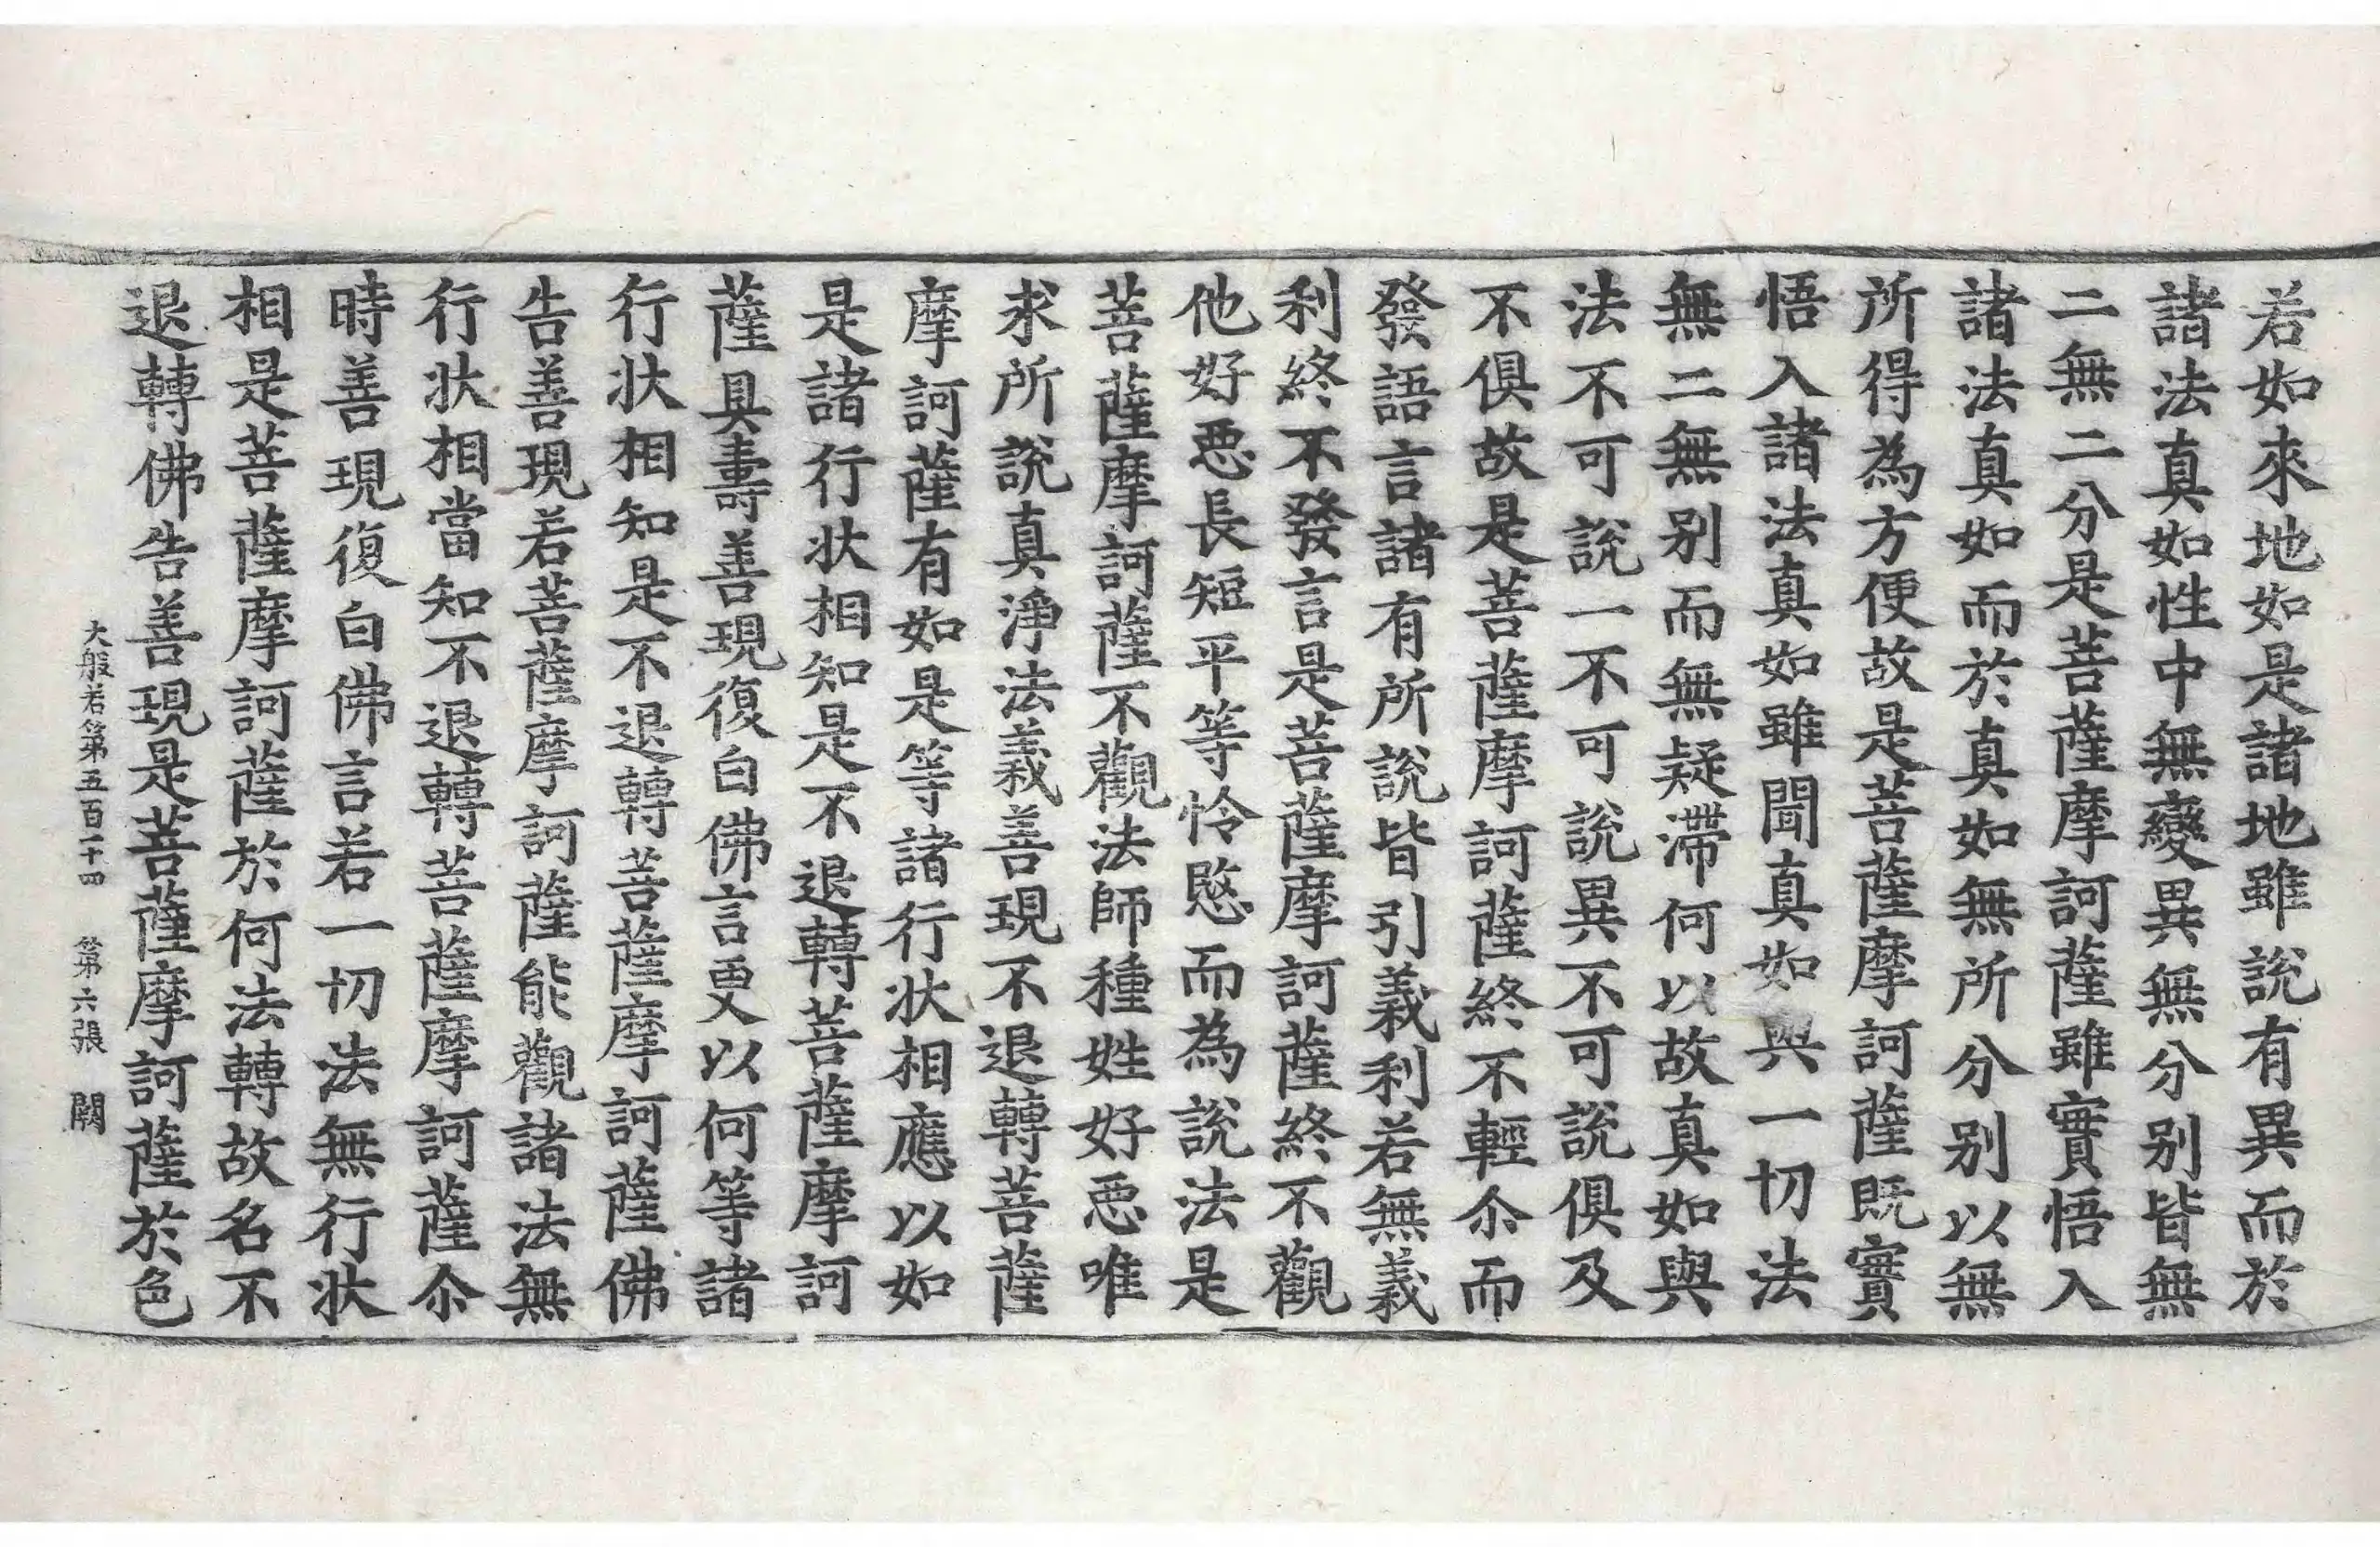 若如來地如是諸地雖說有異而於
諸法真如性中無變異無分别皆無
二無二分是菩薩摩訶薩雖實悟入
諸法真如而於真如無所分别以無
所得為方便故是菩薩摩訶薩既實
悟入諸法真如雖聞真如與一切法
無二無别而無疑滯何以故真如與
法不可說一不可說異不可說俱及
不俱故是菩薩摩訶薩終不輕尒而
發語言諸有所說皆引義利若無義
利終不發言是菩薩摩訶薩終不觀
他好惡長短平等怜愍而為說法是
菩薩摩訶薩不觀法師種姓好惡唯
求所說真淨法義善現不退轉菩薩
摩訶薩有如是等諸行狀相應以如
是諸行狀相知是不退轉菩薩摩訶
薩具壽善現復白佛言更以何等諸
行狀相知是不退轉菩薩摩訶薩佛
告善現若菩薩摩訶薩能觀諸法無
行狀相當知不退轉菩薩摩訶薩尒
時善現復白佛言若一切法無行狀
相是菩薩摩訶薩於何法轉故名不
退轉佛告善現是菩薩摩訶薩於色
大般若第五百二十四 第六張 闕